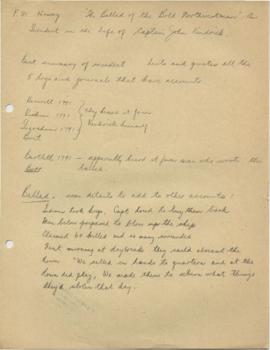 F. W. Howay "The Ballad of the Bold Northwestman", An
Incident in the Life of Captain John Kendrick.
Last summary of incident lists and quotes all the
5 logs and journals that have accounts
Haswell 1791
Hoskins 1791
Ingraham 1791
they heard it from
Kendrick himself
Bartlett 1791 - apparently heard it from man who wrote the
ballad.
Ballad. new details to add to other accounts:
took keys. Capt. tried to buy them back
below prepared to blow up the ship
Claimed 60 killed and as many wounded
Next morning at daybreak they
town "We called in hands to quarters and at the
town did play, We made them to return what things
they'd stolen that day.